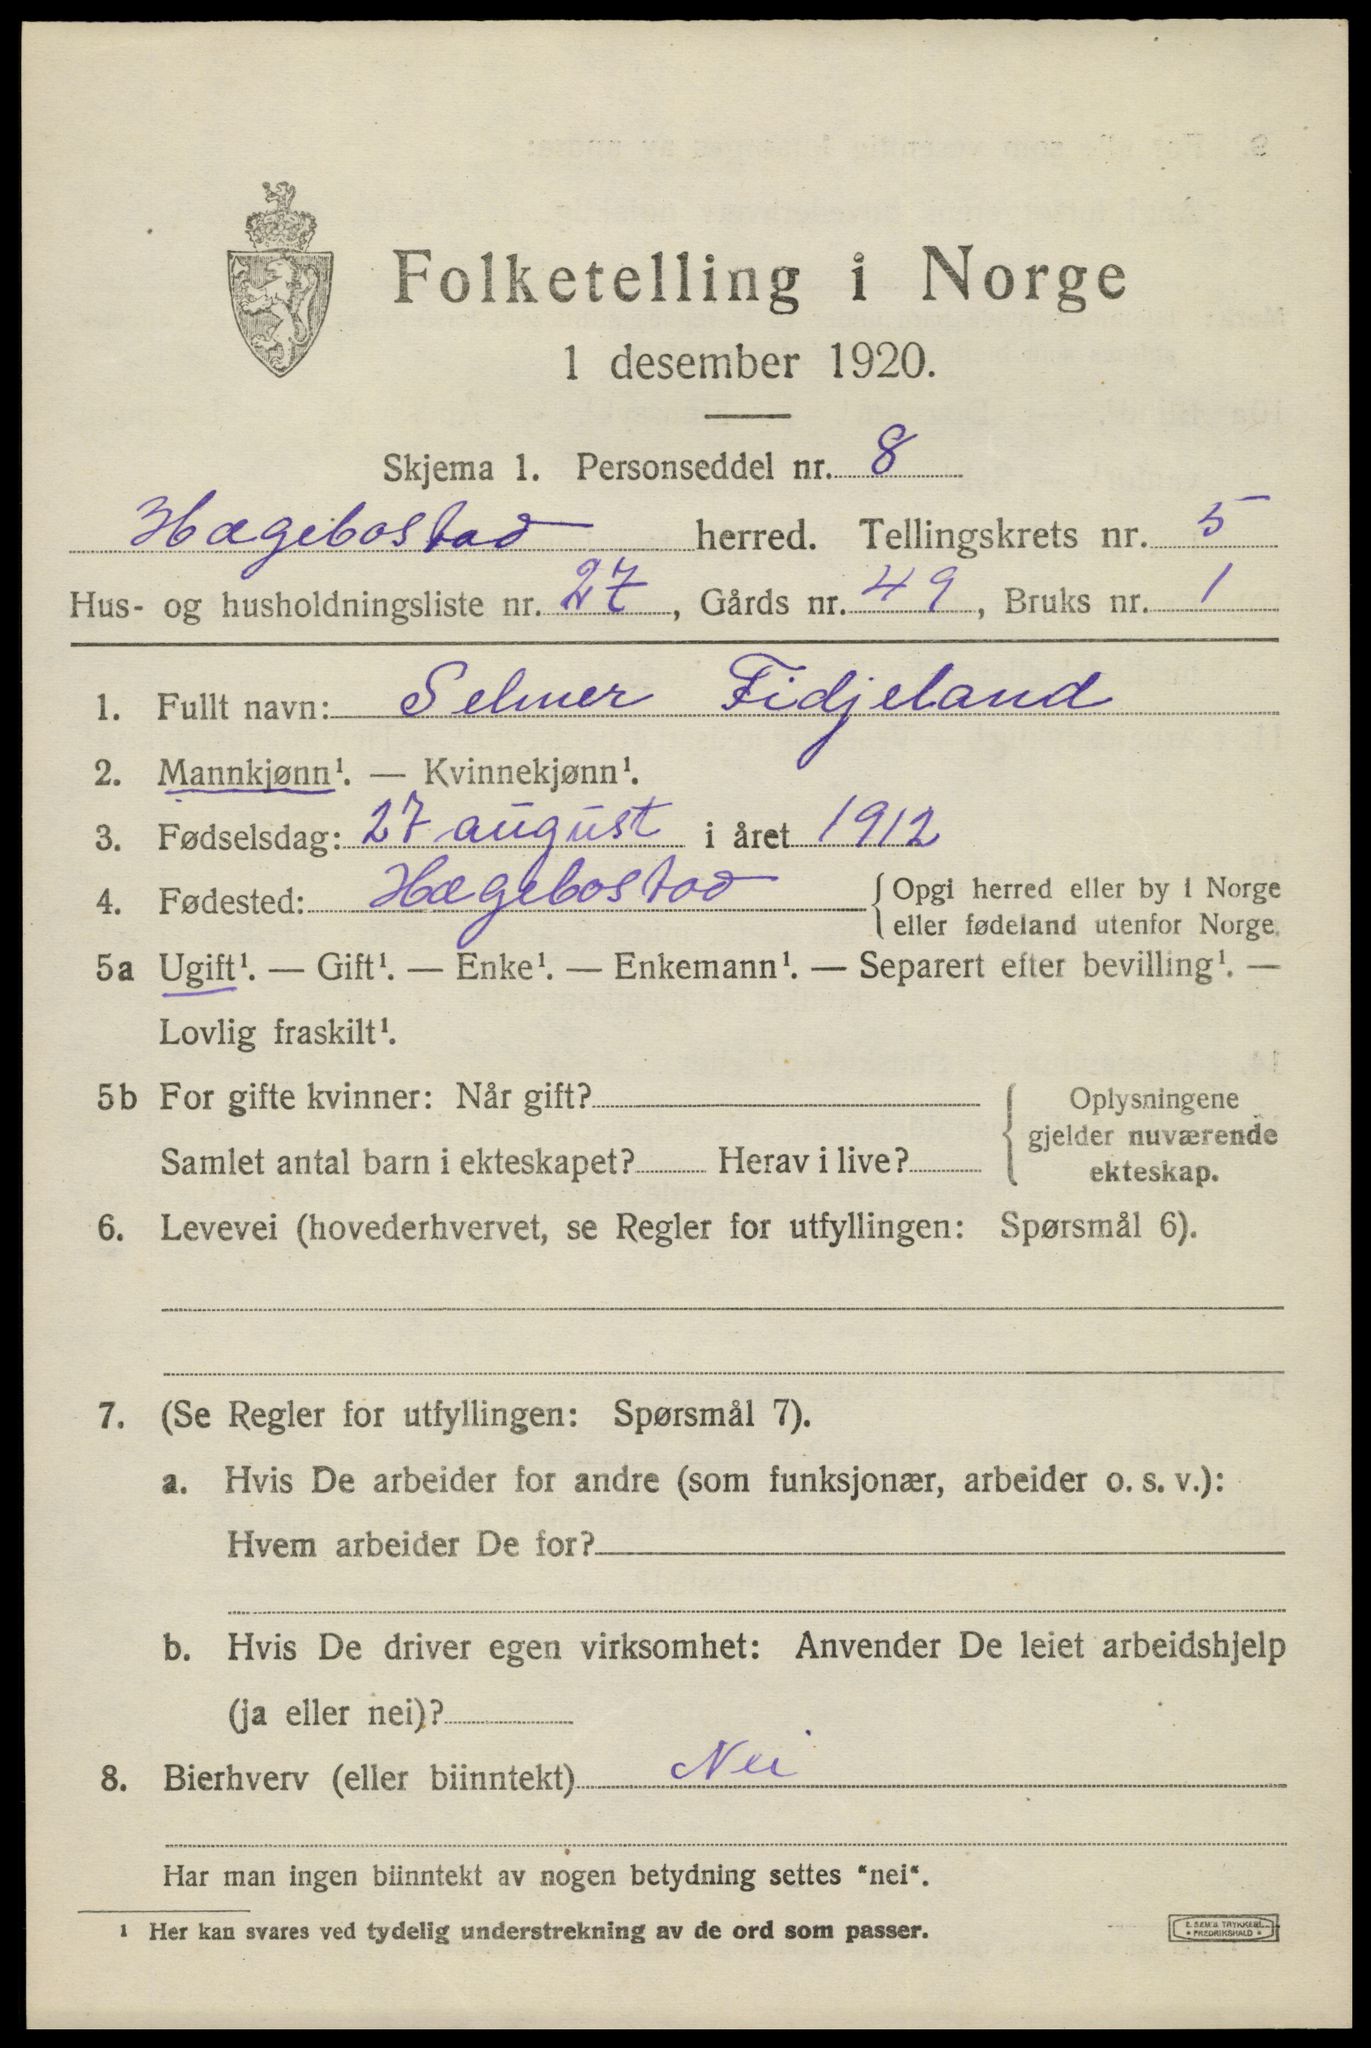 Folketelling i Norge
1 desember 1920.
Skjema 1. Personseddel nr. 8
Hægebostad herred. Tellingskrets nr. 5
Hus- og husholdningsliste nr. 27, Gårds nr. 49, Bruks nr. 1
1. Fullt navn: Selmer Fidjeland
2. Mannkjønn¹. — Kvinnekjønn¹.
3. Fødselsdag: 27 august i året 1912
4. Fødested: Hægebostad { Opgi herred eller by i Norge
eller fødeland utenfor Norge.
5a Ugift¹. — Gift¹. — Enke¹. — Enkemann¹. — Separert efter bevilling¹. —
Lovlig fraskilt¹.
5b For gifte kvinner: Når gift? { Oplysningene
gjelder nuværende
Samlet antal barn i ekteskapet? Herav i live?
ekteskap.
6. Levevei (hovederhvervet, se Regler for utfyllingen: Spørsmål 6).
7. (Se Regler for utfyllingen: Spørsmål 7).
a. Hvis De arbeider for andre (som funksjonær, arbeider o. s. v.):
Hvem arbeider De for?
b. Hvis De driver egen virksomhet: Anvender De leiet arbeidshjelp
(ja eller nei)?
8. Bierhverv (eller biinntekt) Nei
Har man ingen biinntekt av nogen betydning settes "nei".
¹ Her kan svares ved tydelig understrekning av de ord som passer.
E. SEM.S TRYKKERI
* FREDRIKSHALD *